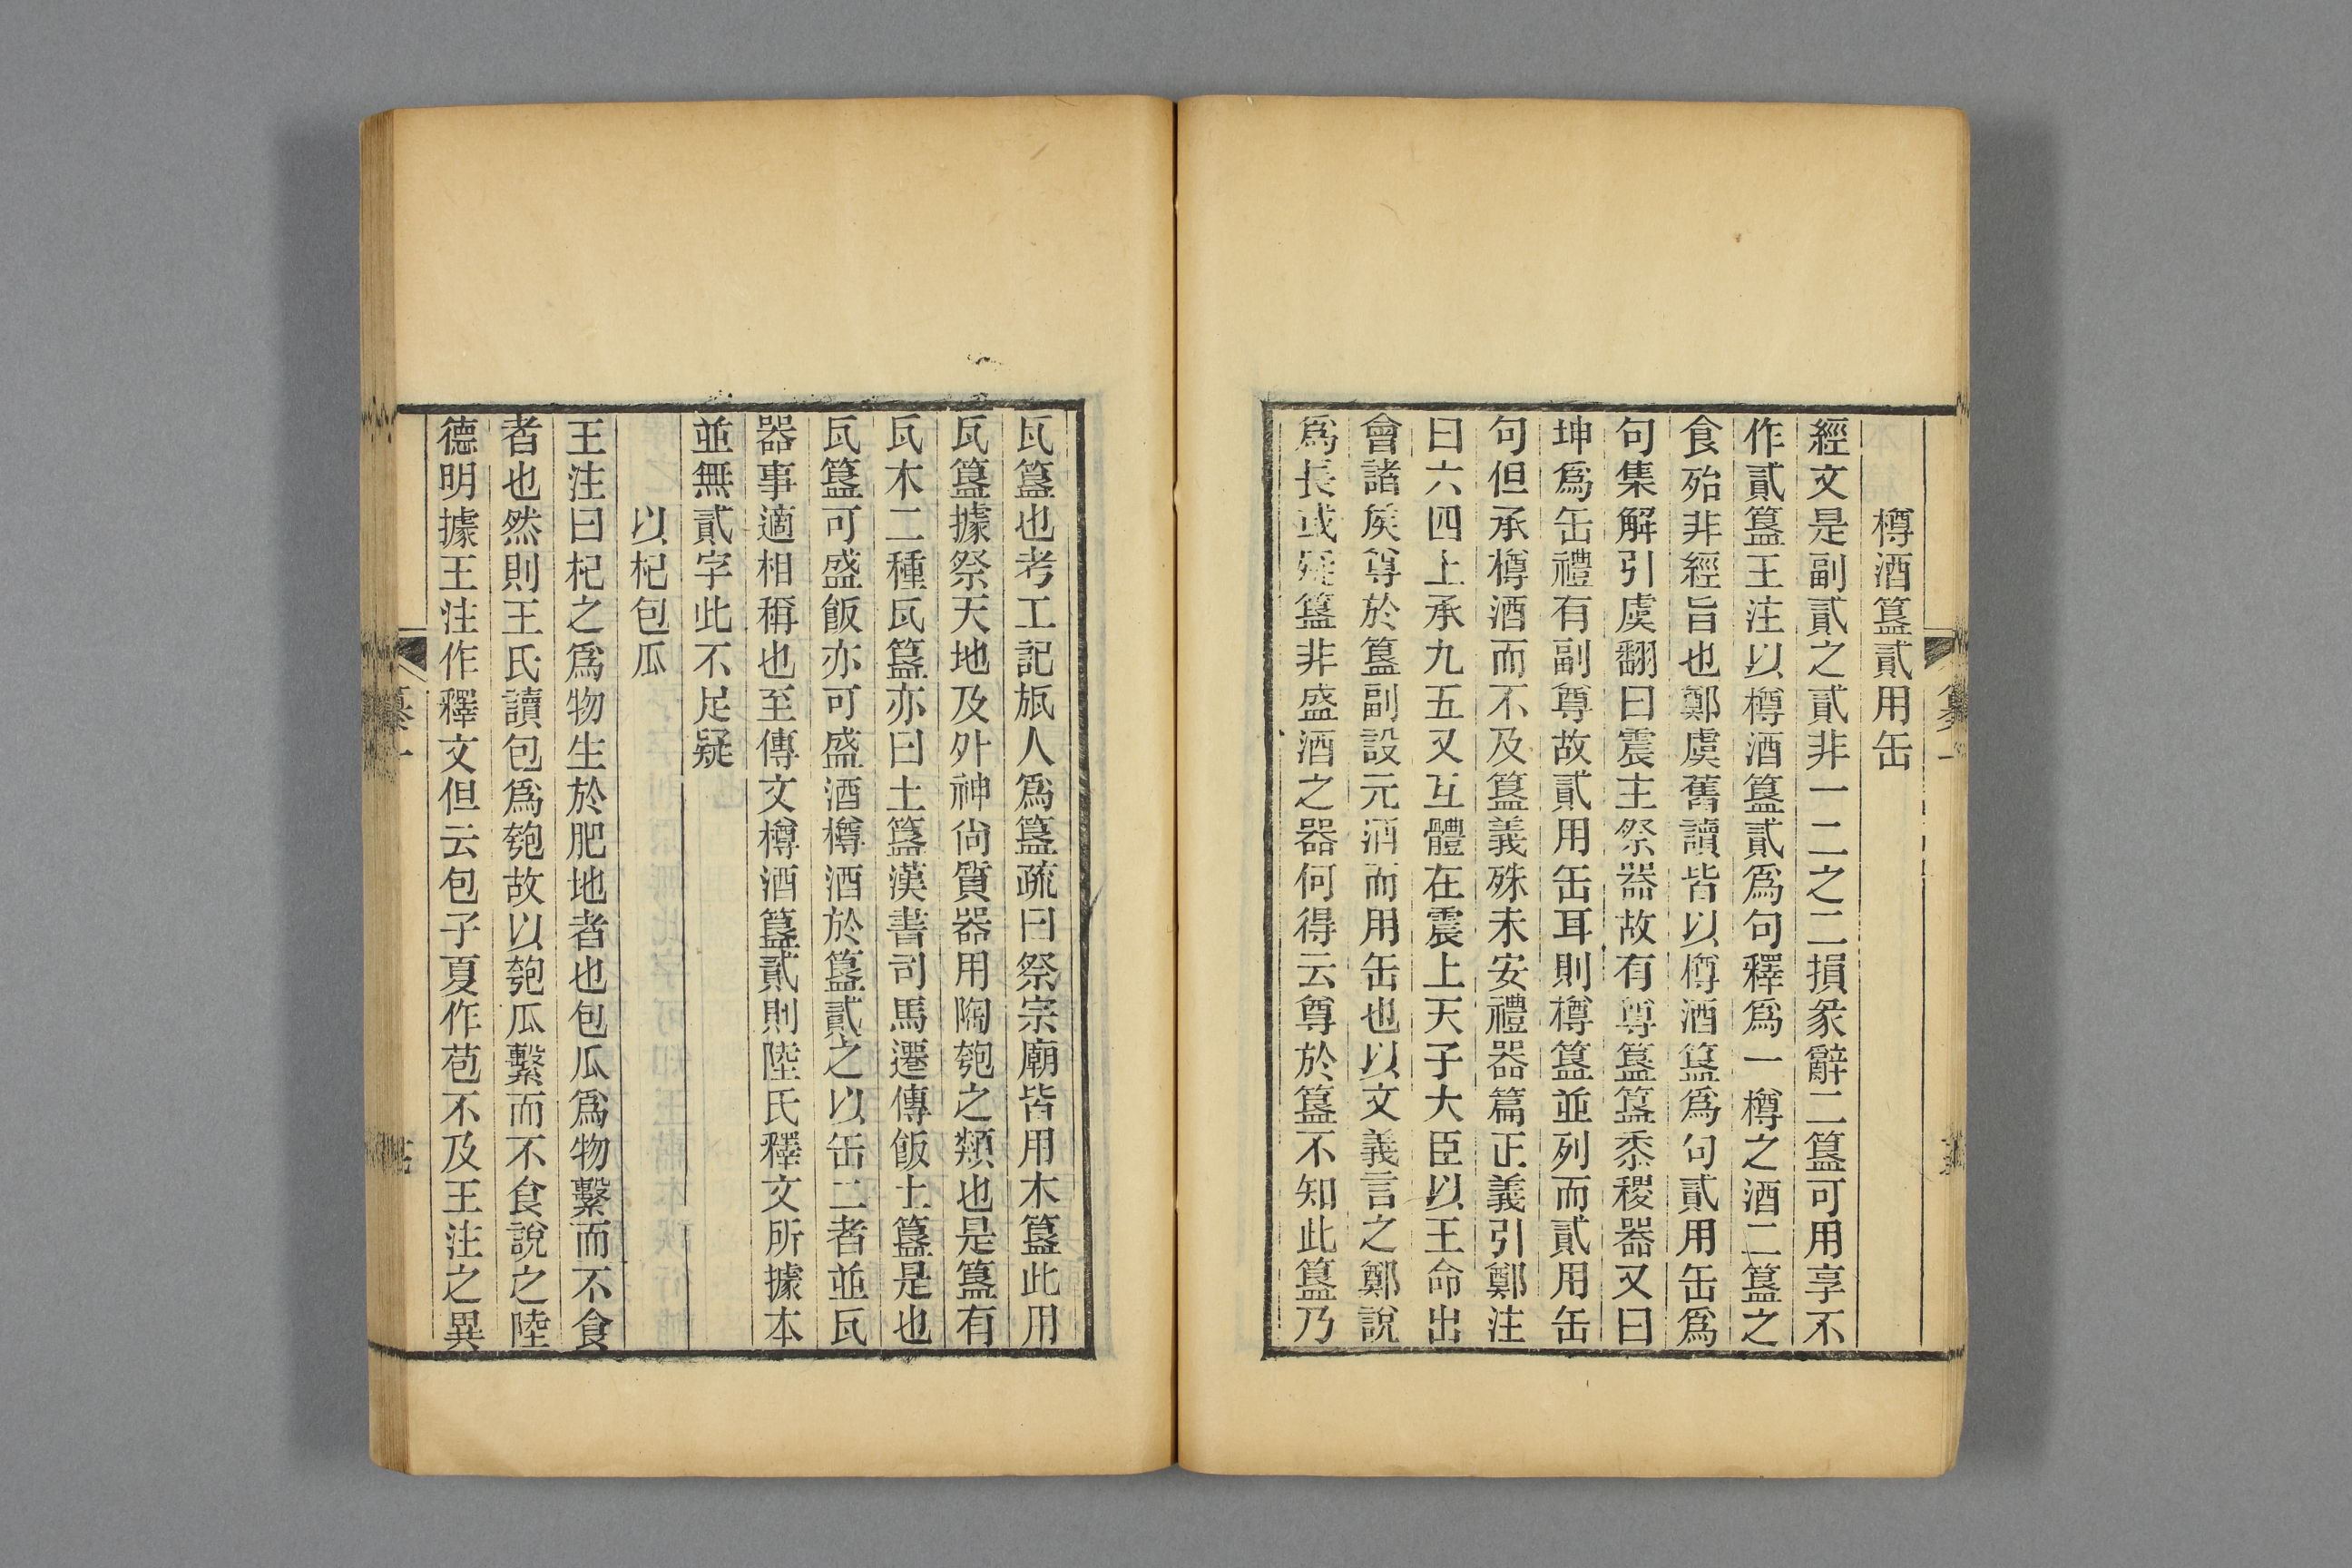 樽酒簋貳用缶
經文是副貳之貳非一二之二損彖辭二簋可用享不
作貳簋王注以樽酒簋貳爲句釋爲一樽之酒二簋之
食殆非經旨也鄭虞舊讀皆以樽酒簋爲句貳用缶爲
句集解引虞翻曰震主祭器故有尊簋簋黍稷器又曰
坤爲缶禮有副尊故貳用缶耳則樽簋並列而貳用缶
句但承樽酒而不及簋義殊未安禮器篇正義引鄭注
曰六四上承九五又互體在震上天子大臣以王命出
會諸矦尊於簋副設元酒而用缶也以文義言之鄭說
爲長或疑簋非盛酒之器何得云尊於簋不知此簋乃
瓦簋也考工記瓬人爲簋疏曰祭宗廟皆用木簋此用
瓦簋據祭天地及外神尙質器用陶匏之類也是簋有
瓦木二種瓦簋亦曰土簋漢書司馬遷傳飯土簋是也
瓦簋可盛飯亦可盛酒樽酒於簋貳之以缶二者並瓦
器事適相稱也至傳文樽酒簋貳則陸氏釋文所據本
並無貳字此不足疑
以杞包瓜
王注曰杞之爲物生於肥地者也包瓜爲物繫而不食
者也然則王氏讀包爲匏故以匏瓜繫而不食說之陸
德明據王注作釋文但云包子夏作苞不及王注之異